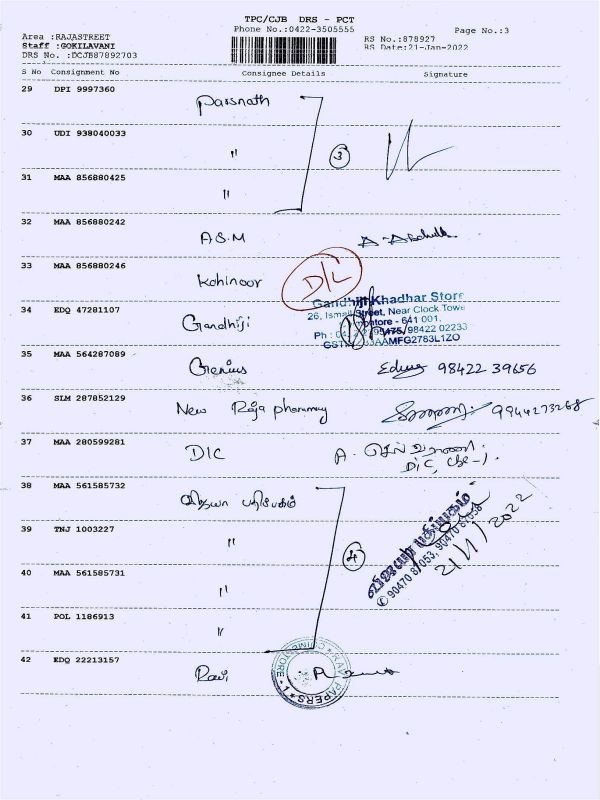 TPC/CJB DRS - PCT
Phone No.:0422-3505555
Page No.:3
Area :RAJASTREET
RS No.:878927
Staff :GOKILAVANI
RS Date:21-Jan-2022
DRS No. :DCJB87892703
S No Consignment No Consignee Details Signature
29 DPI 9997360 Parsnath
30 UDI 938040033 " 3
31 MAA 856880425 "
32 MAA 856880242 A.S.M
33 MAA 856880246 Kohinoor D/L
Gandhiji Khadhar Store
26, Ismail Street, Near Clock Towe
34 EDQ 47281107 Gandhiji
641 001.
98422 02233
35 MAA 564287089 Genius 98422 39656
36 SLM 287852129 New Raja pharmacy 9944273268
37 MAA 280599281 DIC A. செல்வராணி.
DIC, cbe-1.
38 MAA 561585732 விஜயா பதிப்பகம்
விஜயா பதிப்பகம்
90470 87053, 90470 87058
21/1/2022
39 TNJ 1003227 " 4
40 MAA 561585731 "
41 POL 1186913 "
42 EDQ 22213157 Ravi
RAVI PAPERS